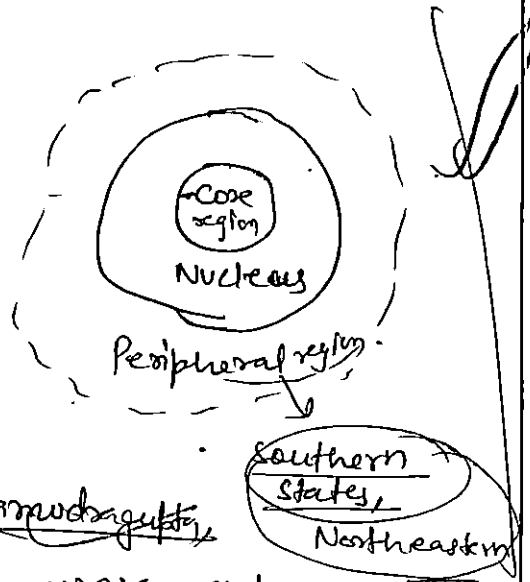 Core
region
Nucleus
Peripheral region.
Southern
states,
Northeastern